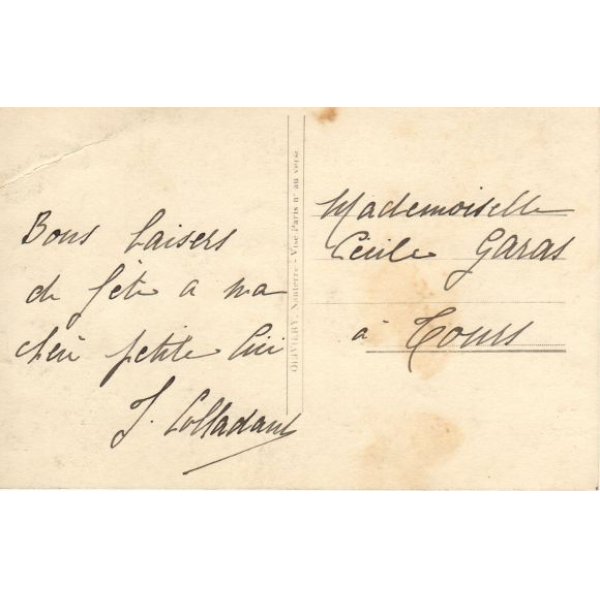 Bons baisers
de fête a ma
chèr petite
J. Colladant
OLIVIERY, Nanterre - Visé Paris n° au verso
Mademoiselle
Cécile Garas
à Tours